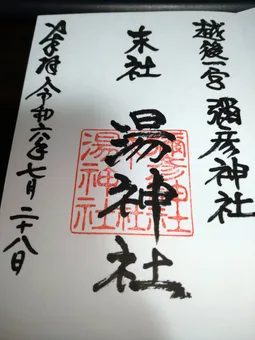 越後一宮 彌彦神社
末社 湯神社
令和六年七月二十八日
彌彦神社
末社
湯神社